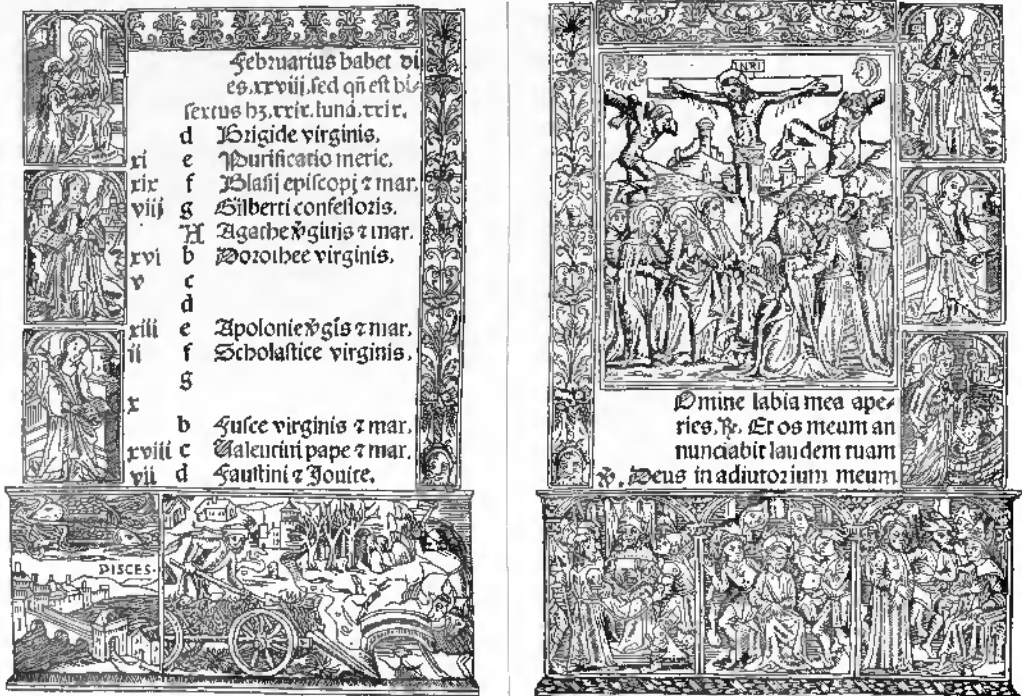 Februarius habet di
es.xxviij.sed qñ est bi-
sextus hz.xxix.luna.xxix.
d Brigide virginis.
xi e Purificatio marie.
xix f Blasij episcopi ⁊ mar.
viij g Gilberti confessoris.
A Agathe v̄ginis ⁊ mar.
xvi b Dorothee virginis.
v c
d
xiii e Apolonie v̄gīs ⁊ mar.
ii f Scholastice virginis.
g
x
b Fusce virginis ⁊ mar.
xviii c Valentini pape ⁊ mar.
vii d Faustini ⁊ Jovite.
PISCES.
INRI
Domine labia mea ape-
ries. ℟. Et os meum an
nunciabit laudem tuam
℣. Deus in adiutorium meum